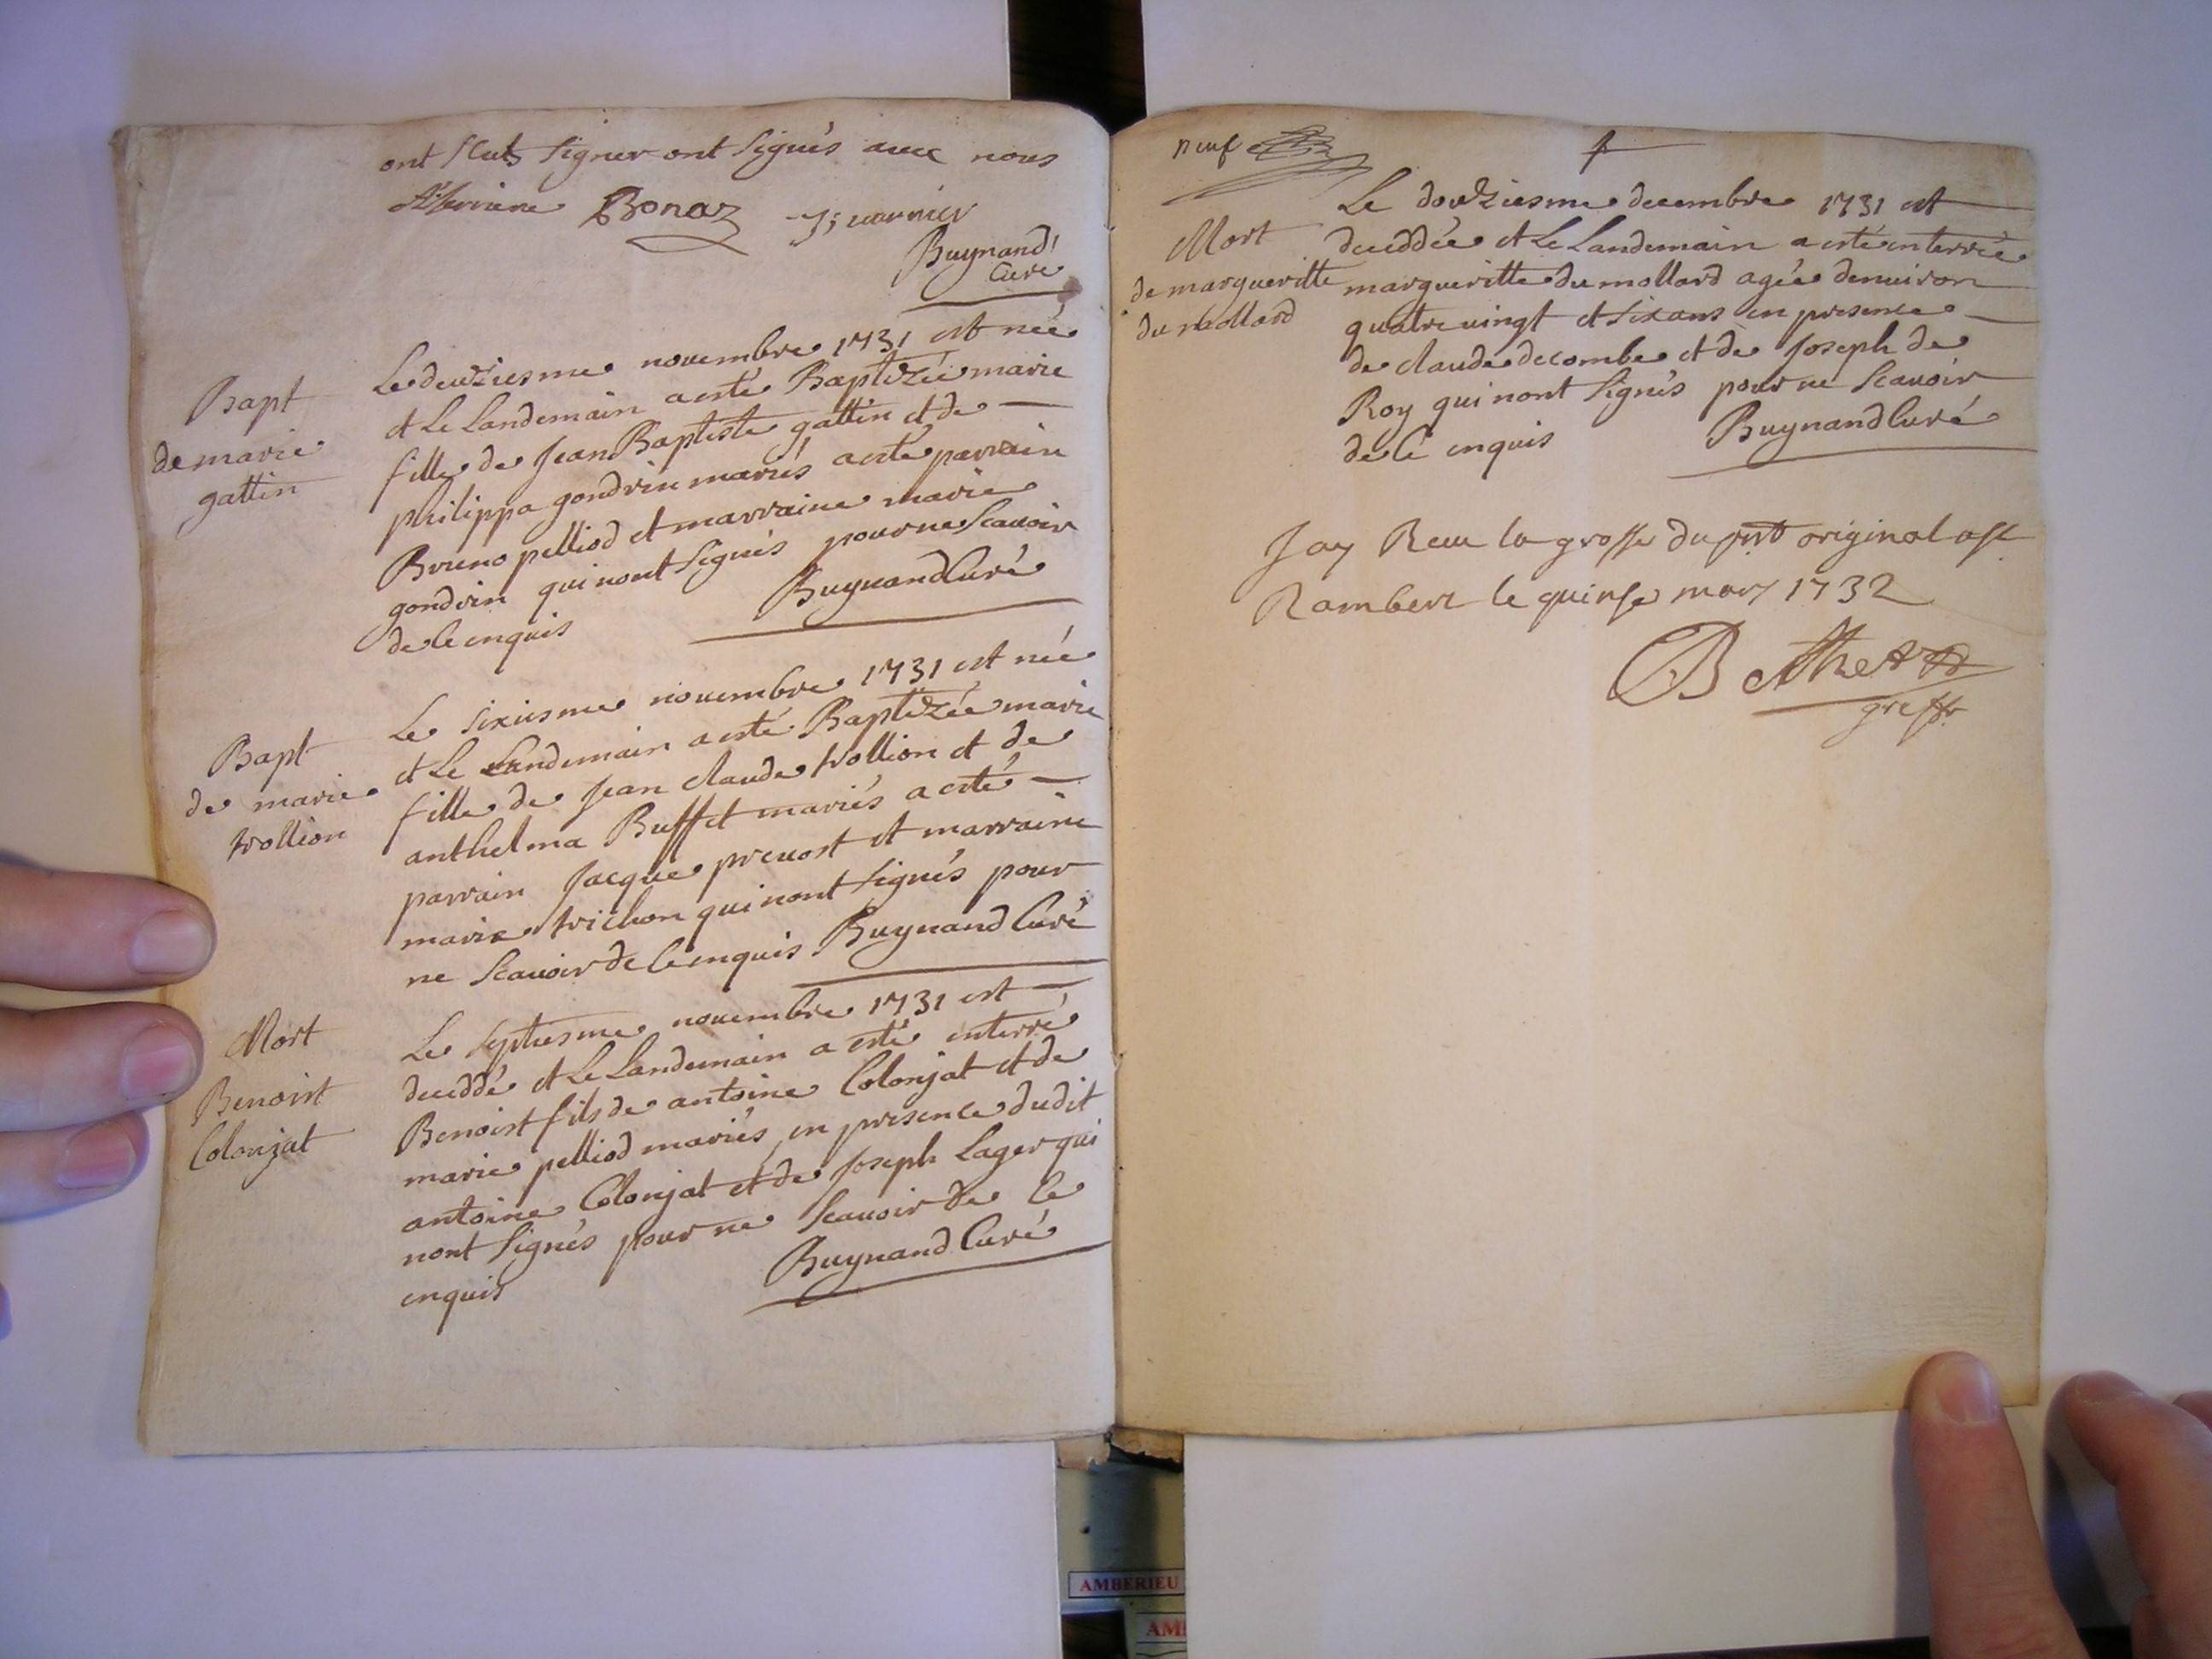 ont scuts signer ont signés avec nous
Bonaz
Buynand
Curé
Bapt
de marie
gattin
Le deuziesme novembre 1731 est née
et Le Landemain a esté Baptizée marie
fille de Jean Baptiste gattin et de
philippa gondrin mariés a esté parrain
Bruno pelliod et marraine marie
gondrin qui nont signés pour ne scavoir
de ce enquis Buynand Curé
Bapt
de marie
trollion
Le sixiesme novembre 1731 est née
et Le Landemain a esté Baptizée marie
fille de Jean claude trollion et de
anthelma Buffet mariés a esté
parrain Jacque prevost et marraine
marie trichon qui nont signés pour
ne scavoir de ce enquis Buynand Curé
Mort
Benoist
Colonjat
Le septiesme novembre 1731 est
deceddé et Le Landemain a esté enterré
Benoist fils de antoine Colonjat et de
marie pelliod mariés en presence dudit
antoine Colonjat et de Joseph Lager qui
nont signés pour ne scavoir de ce
enquis Buynand Curé
neuf
Mort
de margueritte
du mollard
Le douziesme decembre 1731 est
deceddée et Le Landemain a esté enterrée
margueritte du mollard agée denviron
quatrevingt et six ans en presence
de claude decombe et de Joseph de
Roy qui nont signés pour ne scavoir
de ce enquis Buynand Curé
Jay Receu la grosse du pnt original a st
Rambert le quinse mars 1732
greff
AMBERIEU
AM